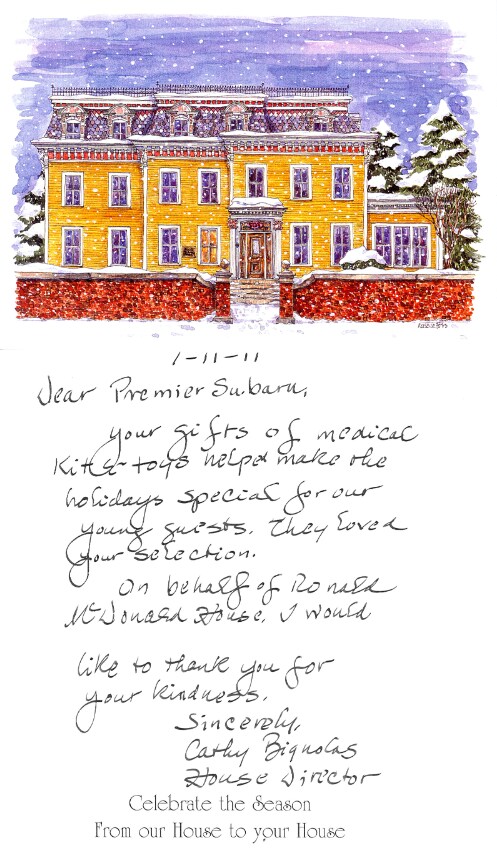 1-11-11
Dear Premier Subaru,
Your gifts of medical
Kits & toys helped make the
holidays special for our
young guests. They loved
your selection.
On behalf of Ronald
McDonald House, I would
like to thank you for
your kindness.
Sincerely,
Cathy Bignolas
House Director
Celebrate the Season
From our House to your House